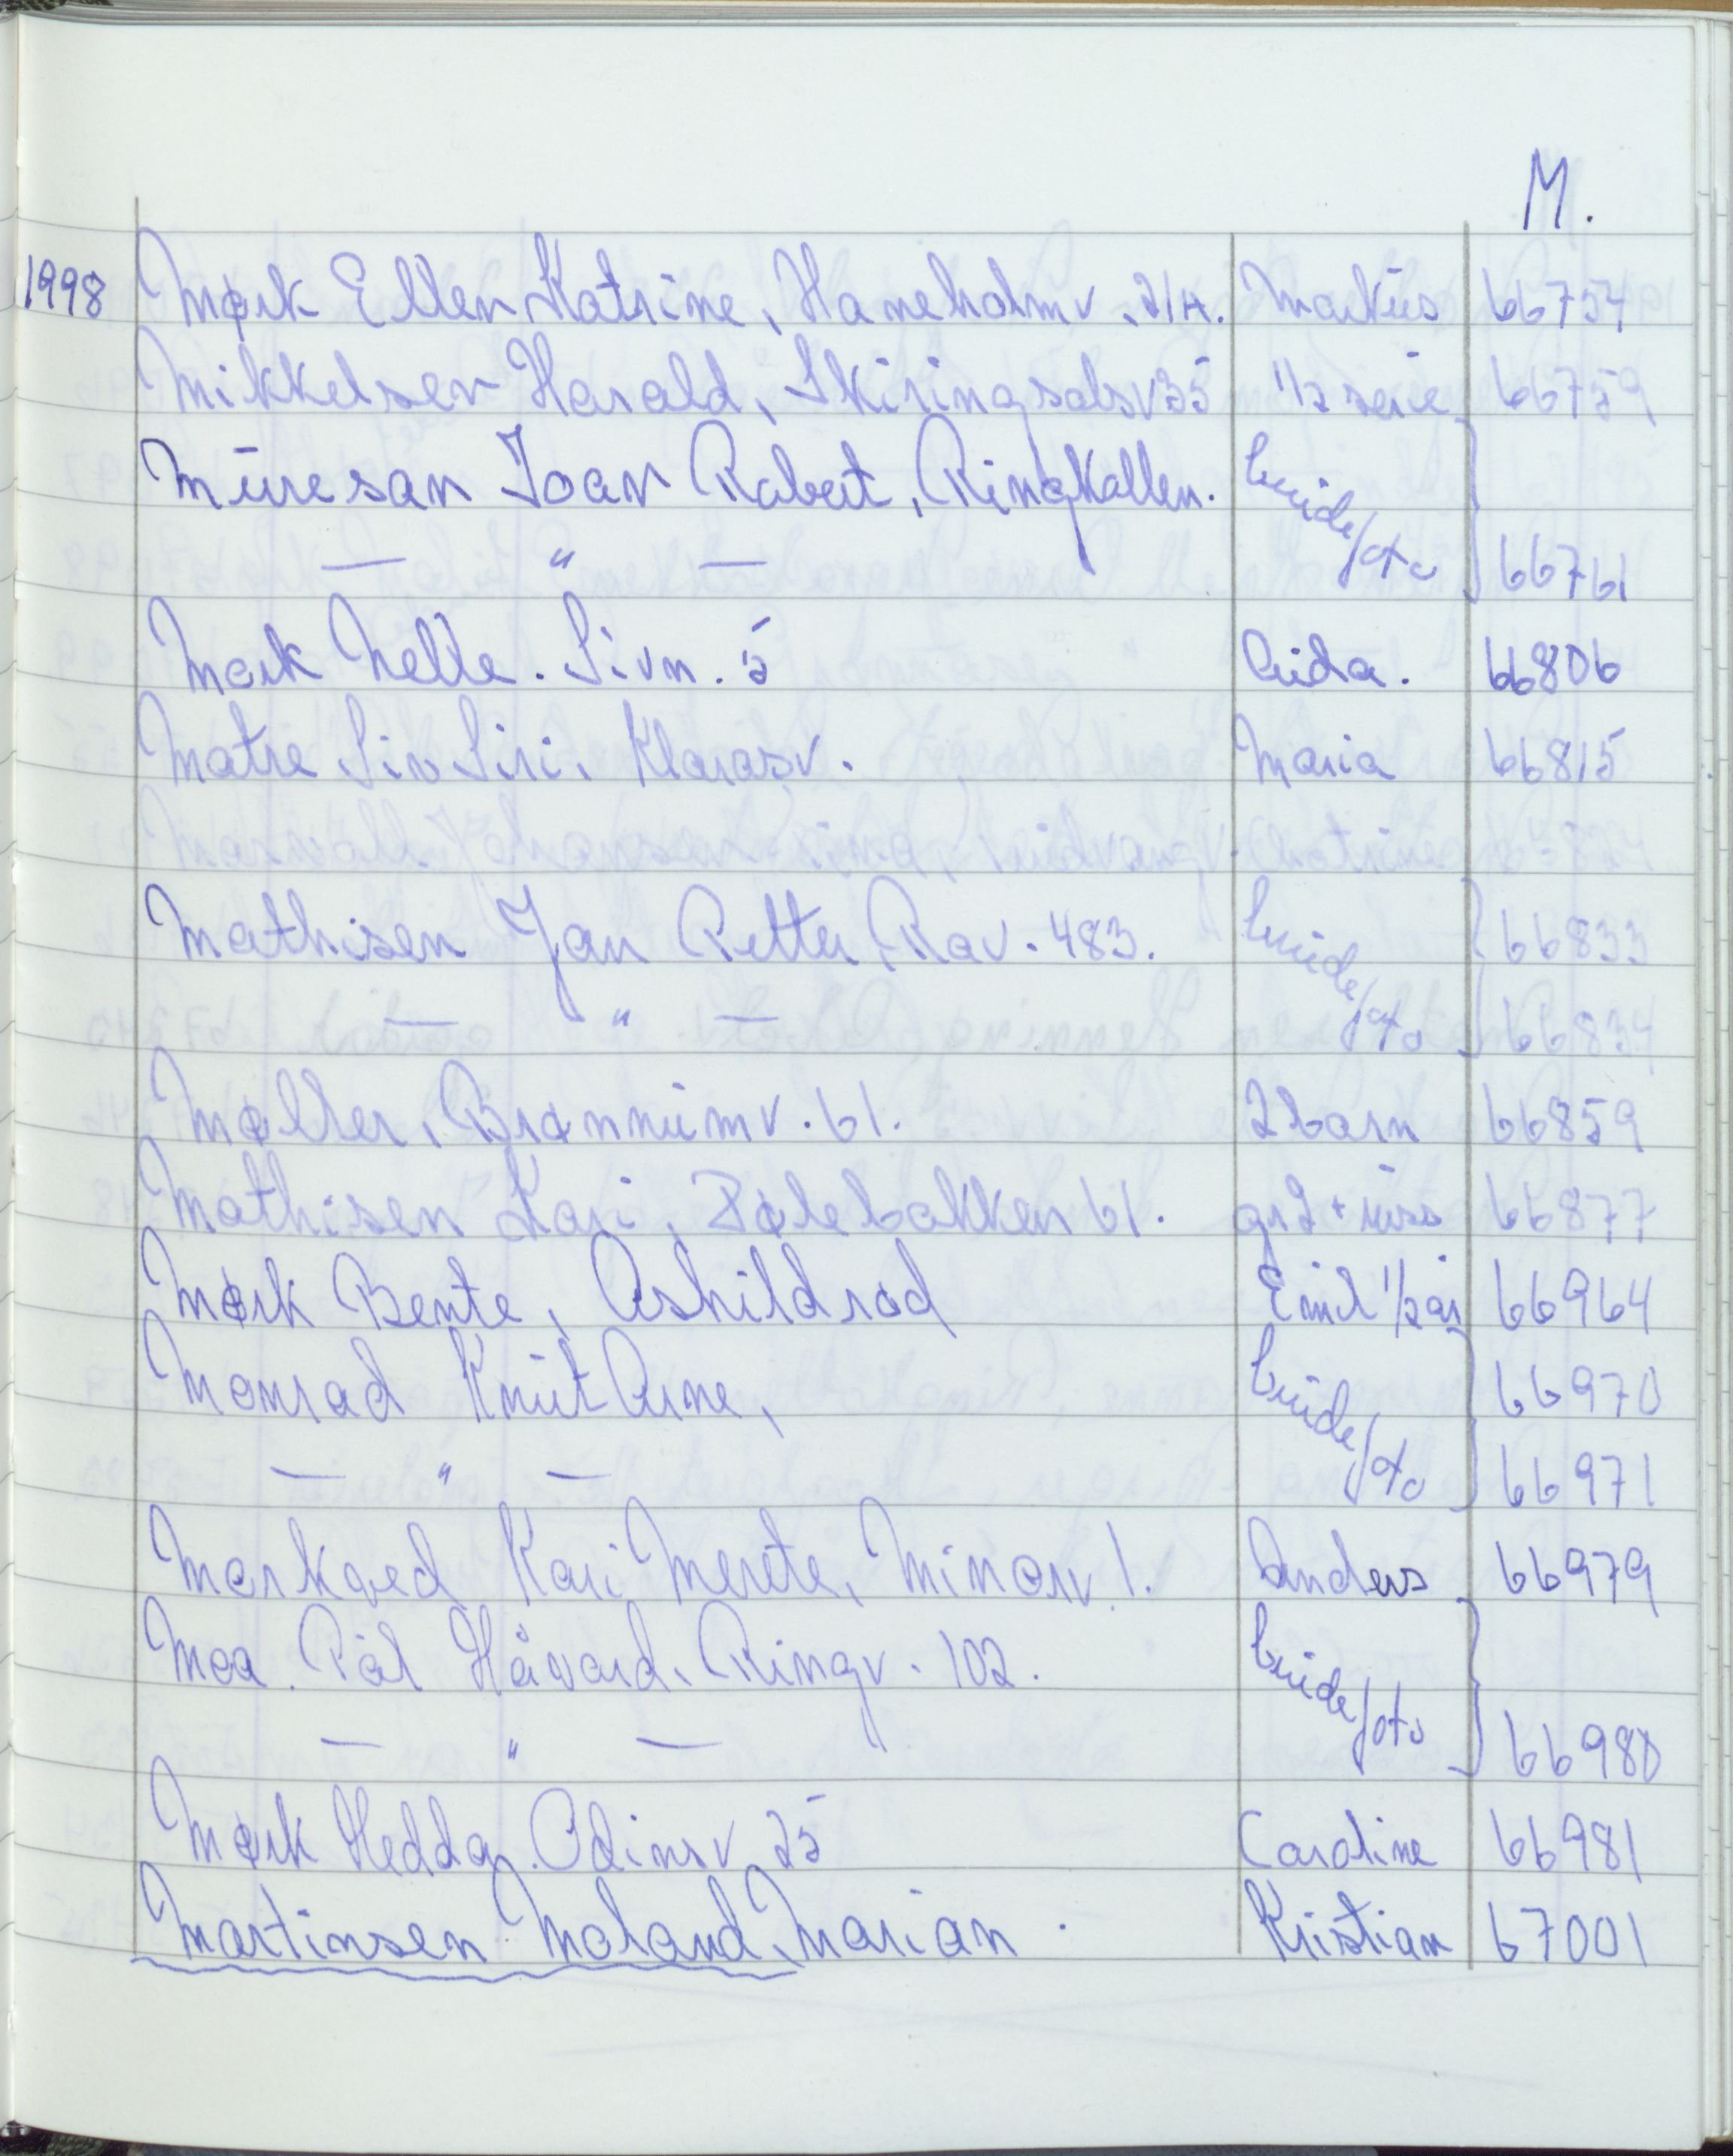 M.
1998 Mørk Ellen Katrine, Haneholmv. 21A. Markus 66754
Mikkelsen Harald, Skiringsalsv 35 1/2 serie 66759
Muresan Ioan Robert, Ringkollen. brude
— " — foto 66761
Mørk Nelle. Sivn. 5 Aida. 66806
Matre Siv Siri, Klarasv. Maria 66815
Mathisen Jan Petter, Rav. 483. brude 66833
— " — foto 66834
Møller, Brønnumv. 61. 2 barn 66859
Mathisen Kari, Bølebakken 61. gr2 + russ 66877
Mørk Bente, Askildrød Emil 1/2 år 66964
Monrad Knut Arne, brude 66970
— " — foto 66971
Markved Kari Merete, Minorv 1. Anders 66979
Moa. Pål Håvard. Ringv. 102. brude
— " — foto 66980
Mørk Hedda. Odinsv 25 Caroline 66981
Martinsen Moland, Marian. Kristian 67001